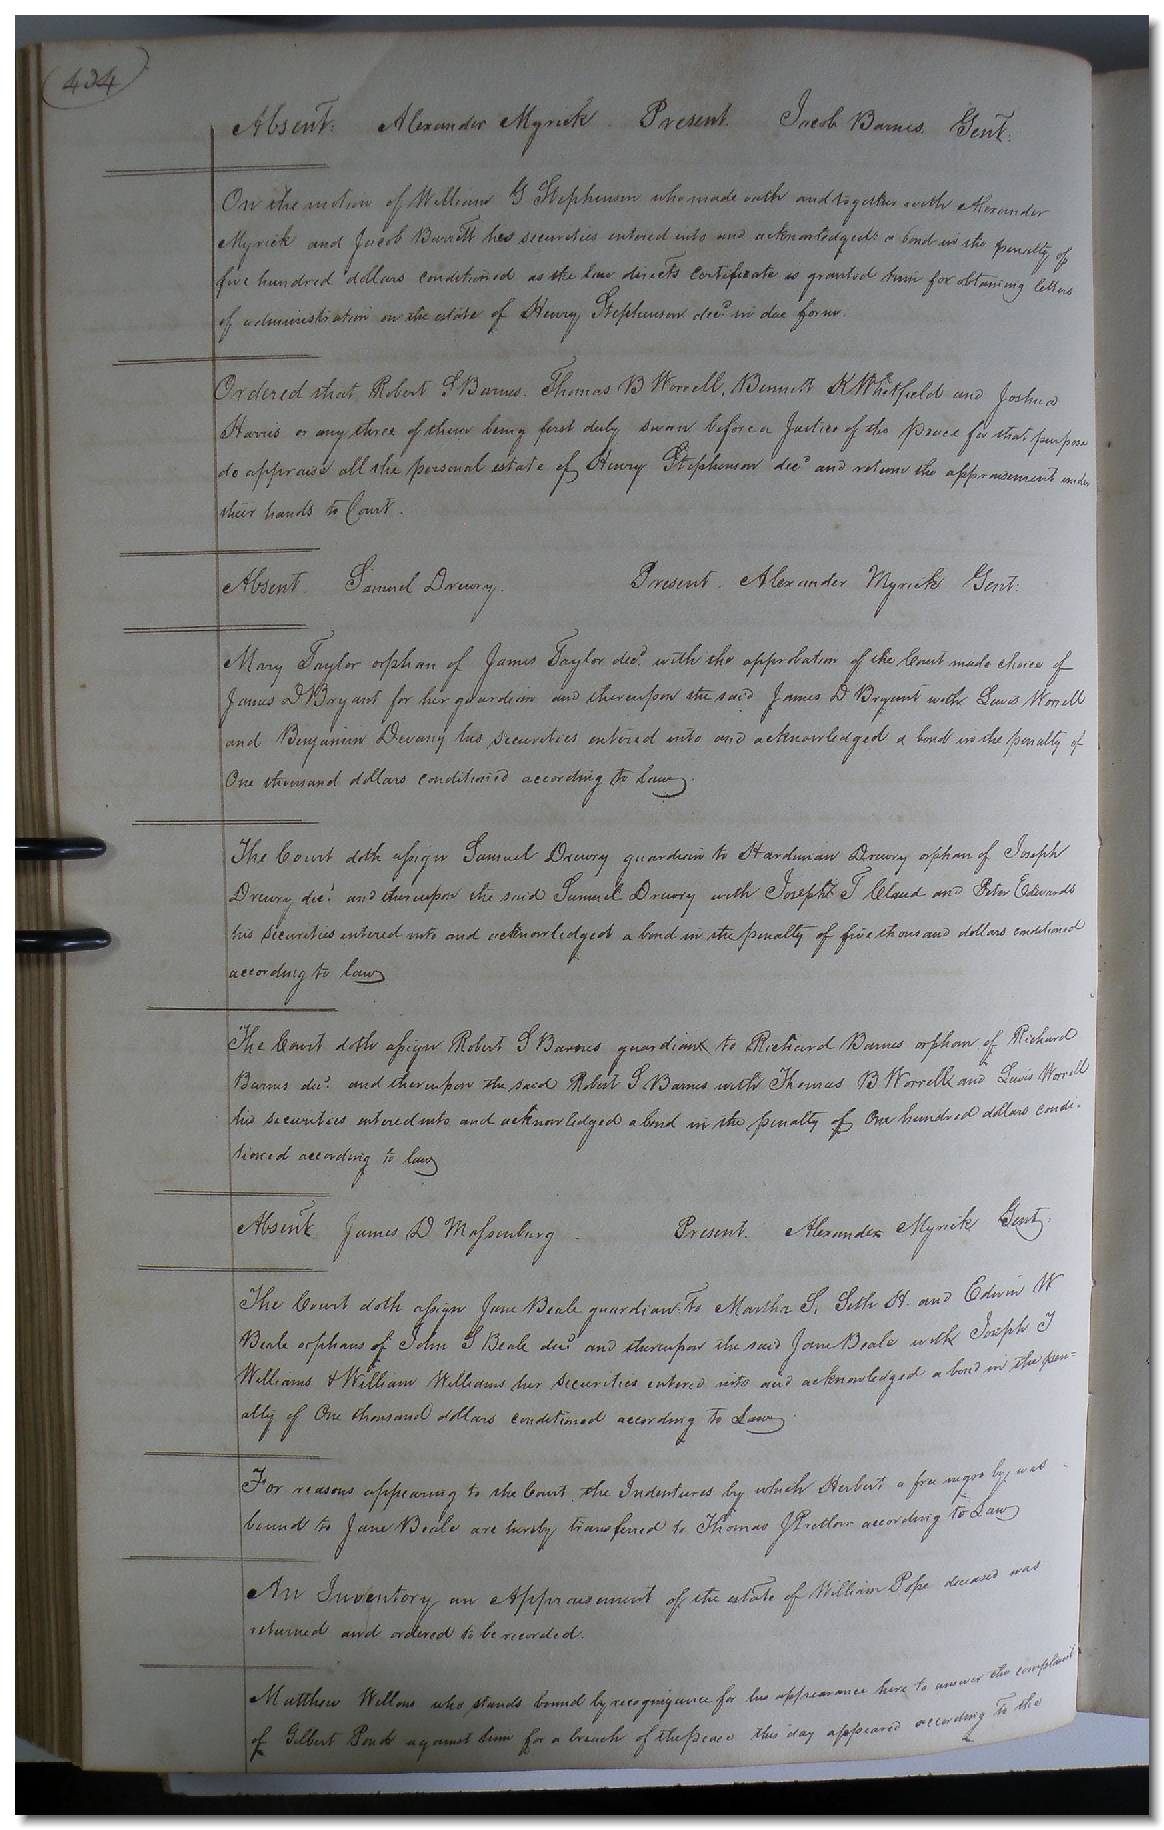 434
Absent. Alexander Myrick. Present. Jacob Barnes. Gent.
On the motion of William G Stephenson who made oath and together with Alexander
Myrick and Jacob Barrett his securities entered into and acknowledged a bond in the penalty of
five hundred dollars conditioned as the law directs certificate is granted him for obtaining letters
of administration on the estate of Henry Stephenson decd. in due form.
Ordered that Robert S Barnes, Thomas B Worrell, Bennett K Whitfield and Joshua
Harris or any three of them being first duly sworn before a Justice of the peace for that purpose
do appraise all the personal estate of Henry Stephenson decd. and return the appraisement under
their hands to Court.
Absent. Samuel Drewry. Present. Alexander Myrick Gent:
Mary Taylor orphan of James Taylor decd. with the approbation of the Court made choice of
James D Bryant for her guardian and thereupon the said James D Bryant with Lewis Worrell
and Benjamin Devany his securities entered into and acknowledged a bond in the penalty of
One thousand dollars conditioned according to Law.
The Court doth assign Samuel Drewry guardian to Hardiman Drewry orphan of Joseph
Drewry decd. and thereupon the said Samuel Drewry with Joseph T Claud and Peter Edwards
his securities entered into and acknowledged a bond in the penalty of five thousand dollars conditioned
according to law
The Court doth assign Robert S Barnes guardian to Richard Barnes orphan of Richard
Barnes decd. and thereupon the said Robert S Barnes with Thomas B Worrell and Lewis Worrell
his securities entered into and acknowledged a bond in the penalty of One hundred dollars condi-
tioned according to law
Absent James D Massenburg. Present. Alexander Myrick Gent.
The Court doth assign Jane Beale guardian to Martha S, Seth H. and Edwin W
Beale orphans of John S Beale decd. and thereupon the said Jane Beale with Joseph T
Williams & William Williams her securities entered into and acknowledged a bond in the pen=
alty of One thousand dollars conditioned according to Law.
For reasons appearing to the Court, the Indentures by which Herbert a free negro boy was
bound to Jane Beale are hereby transferred to Thomas J Pretlow according to Law
An Inventory an Appraisement of the estate of William Pope deceased was
returned and ordered to be recorded.
Matthew Wellons who stands bound by recognizance for his appearance here to answer the complaint
of Gilbert Pond against him for a breach of the peace this day appeared according to the